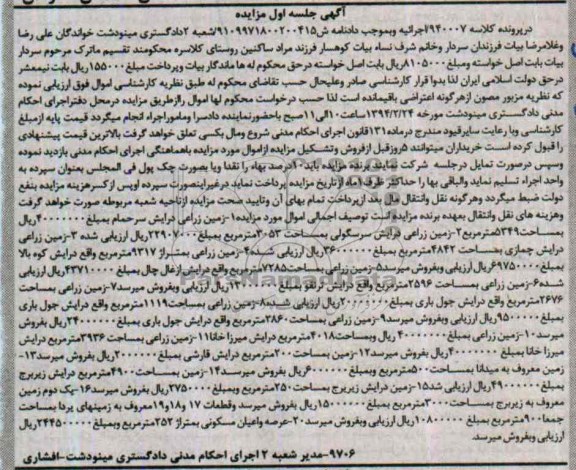 آگهی جلسه اول مزایده
درپرونده کلاسه ۹۴۰۰۰۷/اجرائیه وبموجب دادنامه ش۹۱۰۹۹۷۱۸۰۰۲۰۰۴۱۵/شعبه ۲دادگستری مینودشت خواندگان علی رضا
وغلامرضا بیات فرزندان سردار وخانم شرف نساء بیات کوهسار فرزند مراد ساکنین روستای کلاسره محکومند تقسیم ماترک مرحوم سردار
بیات بابت اصل خواسته ومبلغ ۸۱۰۵۰۰۰ریال بابت اصل خواسته درحق محکوم له ها ماندگار بیات وپرداخت مبلغ ۱۵۵۰۰۰ریال بابت نیمعشر
درحق دولت اسلامی ایران لذا بدوا قرار کارشناسی صادر وعلیحال حسب تقاضای محکوم له طبق نظریه کارشناسی اموال فوق ارزیابی نموده
که نظریه مزبور مصون ازهرگونه اعتراضی باقیمانده است لذا حسب درخواست محکوم لها اموال راازطریق مزایده درمحل دفتراجرای احکام
مدنی دادگستری مینودشت مورخه ۱۳۹۴/۲/۲۴ ساعت ۱۰الی۱۱صبح باحضورنماینده دادسرا وماموراجراء انجام میگردد قیمت پایه ازمبلغ
کارشناسی وبا رعایت سایرقیود مندرج درماده۱۳۱قانون اجرای احکام مدنی شروع ومال بکسی تعلق خواهد گرفت بالاترین قیمت پیشنهادی
را قبول کرده است خریداران میتوانند ۵روزقبل ازفروش وتشکیل مزایده ازاموال مورد مزایده باهماهنگی اجرای احکام مدنی بازدید نموده
وسپس درصورت تمایل درجلسه شرکت نمایند برنده مزایده باید ۱۰درصد بهاء را نقدا ویا بصورت چک پول فی المجلس بعنوان سپرده به
واحد اجراء تسلیم نماید والباقی بها را حداکثر ظرف ماه ازتاریخ مزایده پرداخت نماید درغیراینصورت سپرده اوپس ازکسرهزینه مزایده بنفع
دولت ضبط میگردد وهرگونه نقل وانتقال مال بعد ازپرداخت تمام بهای آن وتایید صحت مزایده ازناحیه شعبه مربوطه صورت خواهد گرفت
وهزینه های نقل وانتقال بعهده برنده مزایده است توصیف اجمالی اموال مورد مزایده ۱-زمین زراعی درایش سرحمام بمبلغ ریال
بمساحت ۵۳۴۹مترمربع ۲-زمین زراعی درایش سرگسولی بمساحت ۳۰۵۳مترمربع بمبلغ ریال ارزیابی شده ۳-زمین زراعی
درایش چمازی بمساحت ۴۸۴۲مترمربع بمبلغ ریال ارزیابی شده ۴-زمین زراعی بمتراژ ۹۳۱۷مترمربع واقع درایش کوه بالا
بمبلغ ریال ارزیابی وبفروش میرسد ۵-زمین زراعی بمساحت ۷۲۸۵مترمربع واقع درایش ازغال چال بمبلغ ریال ارزیابی
شده ۶-زمین زراعی بمساحت ۲۵۹۶ مترمربع واقع درایش بمبلغ ریال ارزیابی وبفروش میرسد ۷-زمین زراعی بمساحت
۲۶۷۶مترمربع واقع درایش جول باری بمبلغ ریال ارزیابی شده ۸-زمین زراعی بمساحت ۱۱۱۹مترمربع واقع درایش جول باری
بمبلغ ریال ارزیابی وبفروش میرسد ۹-زمین زراعی بمساحت ۳۸۶۰مترمربع واقع درایش جول باری بمبلغ ریال بفروش
میرسد ۱۰-زمین زراعی بمبلغ ریال وبمساحت ۴۰۱۸مترمربع درایش میرزا خانا ۱۱-زمین زراعی بمساحت ۳۹۳۶مترمربع درایش
میرزا خانا بمبلغ ریال بفروش میرسد ۱۲-زمین بمساحت ۲۰۰مترمربع درایش قارشی بمبلغ ریال بفروش میرسد ۱۳-
زمین معروف به میدانا بمساحت ۵۰۰مترمربع وبمبلغ ریال بفروش میرسد ۱۴- زمین بمساحت ۴۹۰۰مترمربع درایش زیربرج
بمبلغ ریال ارزیابی شد ۱۵-زمین درایش زیربرج بمساحت ۲۵۰مترمربع وبمبلغ ریال بفروش میرسد ۱۶-یک دوم زمین
معروف به زیربرج بمساحت ۳۰۰۰مترمربع بمبلغ ریال بفروش میرسد وقطعات ۱۷ و۱۸و۱۹معروف به زمینهای پردا بمساحت
جمعا ۹۰۰مترمربع بمبلغ ریال ارزیابی وبفروش میرسد ۲۰-عرصه واعیان مسکونی بمتراژ ۲۵۲مترمربع وبمبلغ ریال
ارزیابی وبفروش میرسد.
۹۷۰۶-مدیر شعبه ۲ اجرای احکام مدنی دادگستری مینودشت-افشاری